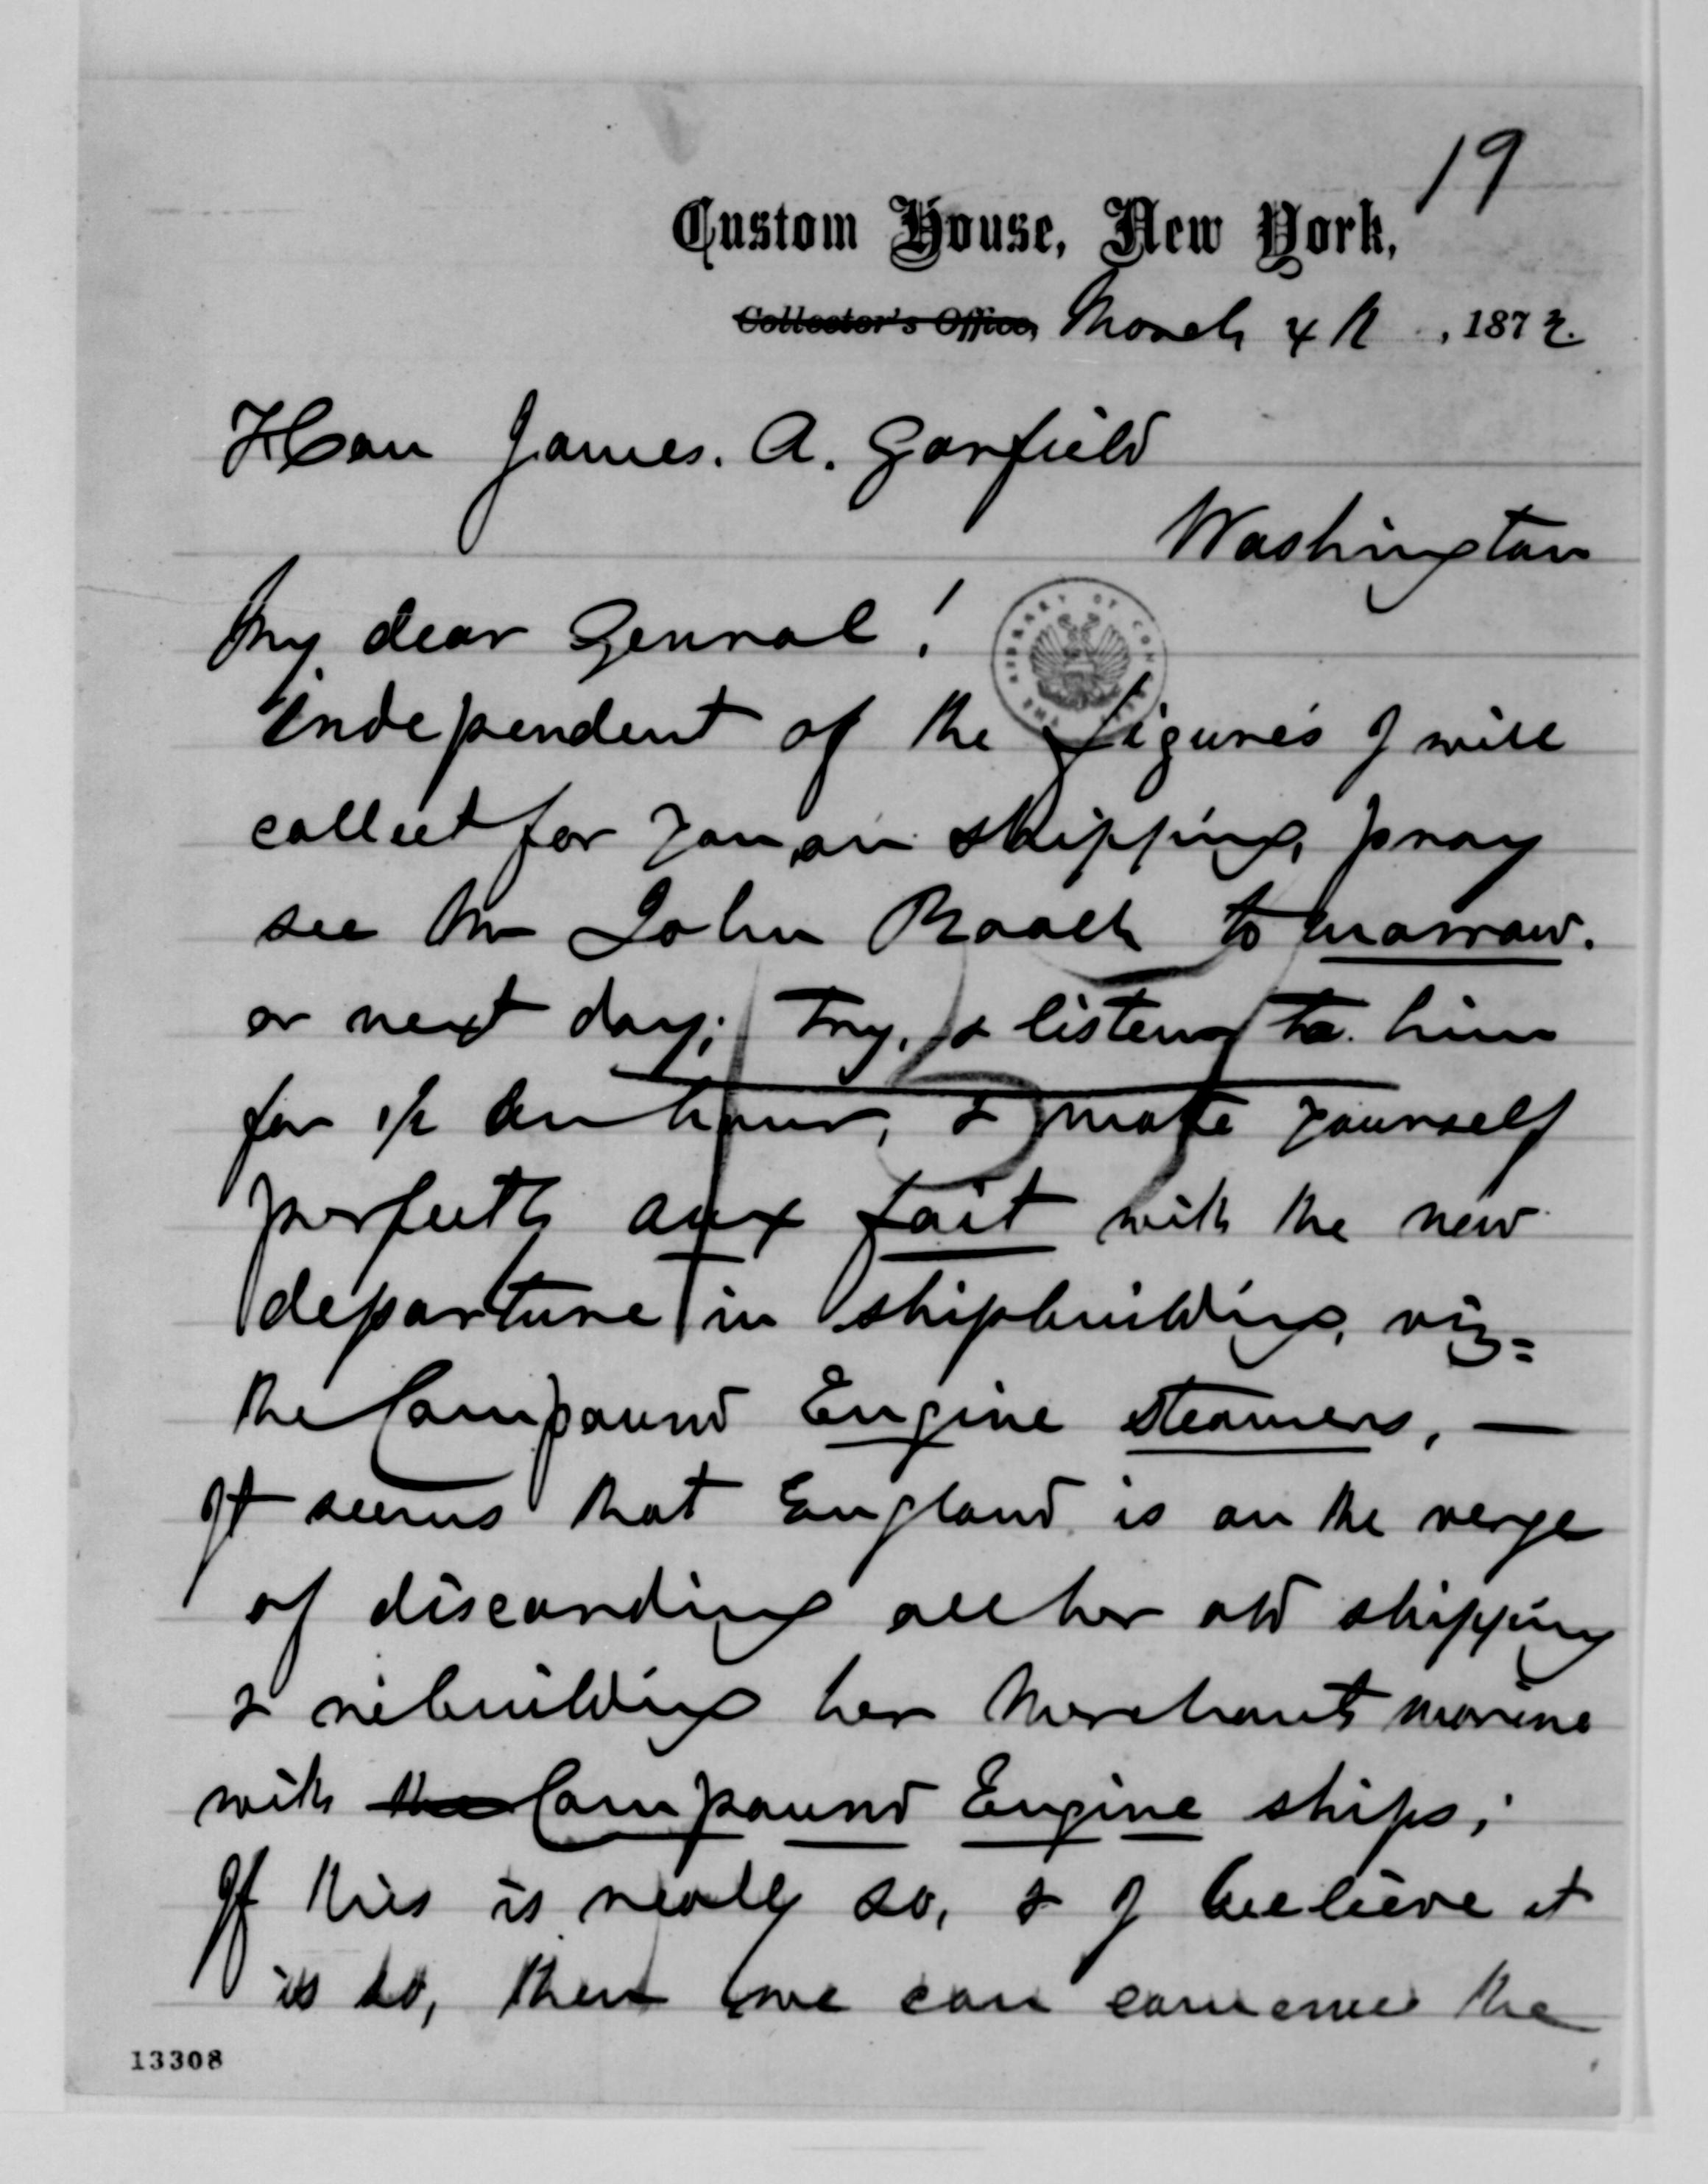 19
Custom House, New York,
Collector's Office, March 4th, 1872.
Hon James. A. Garfield
Washington
My dear General!
Independent of the figures I will
collect for you, on shipping, pray
see Mr John Roach to morrow.
or next day; Try, & listen to him
for 1/2 an hour, & make yourself
perfectly aux fait with the new
departure in shipbuilding, viz=
the Compound Engine steamers, —
It seems that England is on the verge
of discarding all her old shipping
& rebuilding her Merchants marine
with the Compound Engine ships;
If this is really so, & I believe it
is so, then we can commence the
15
13308